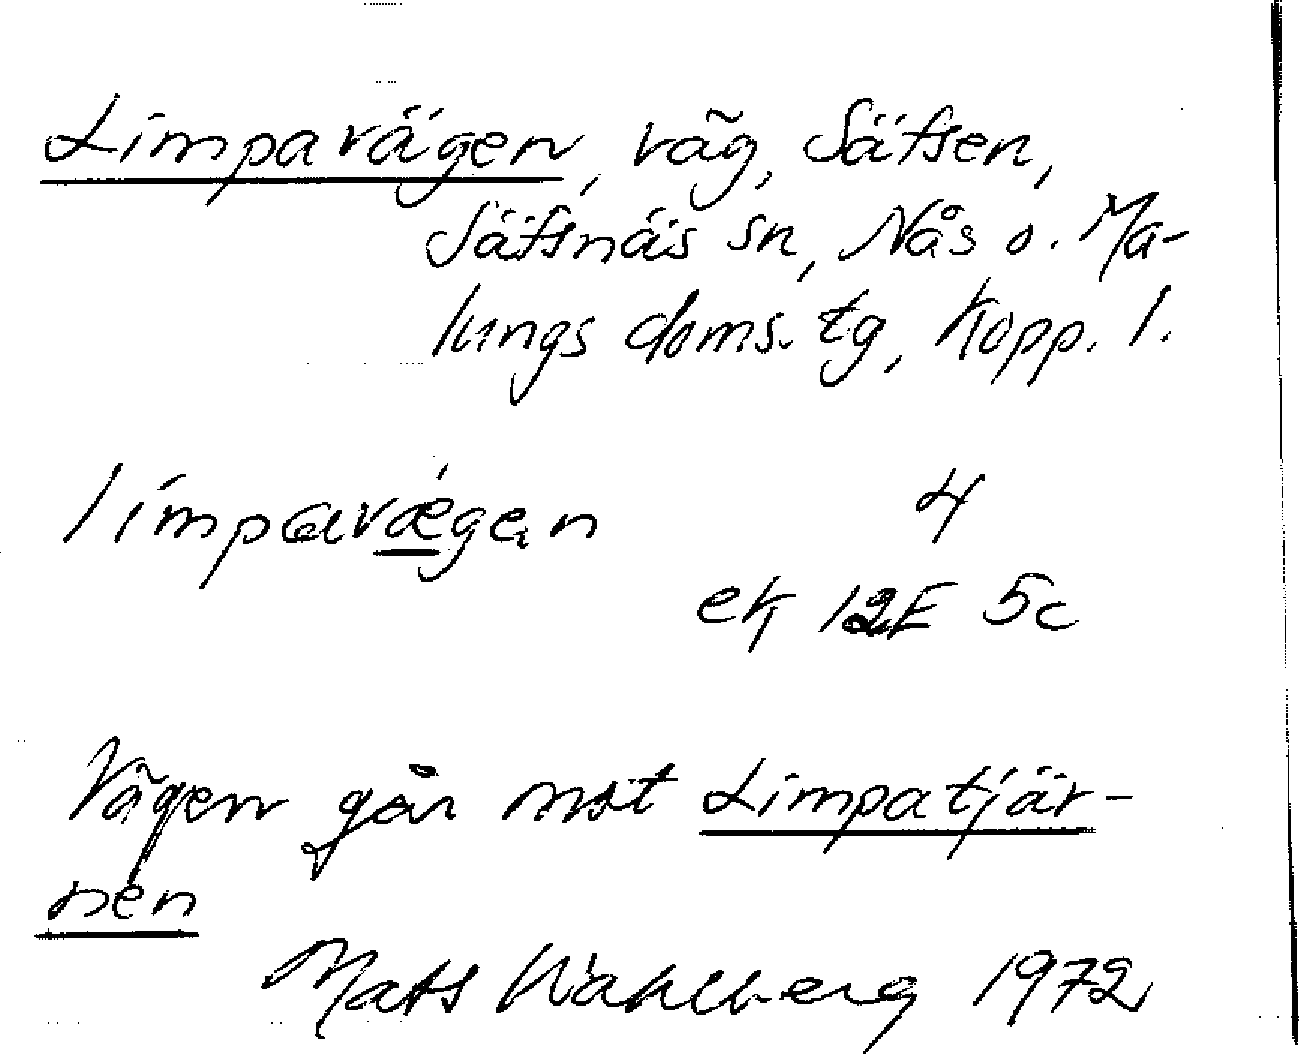 Limpavägen, väg, Säfsen,
Säfsnäs sn, Nås o. Ma-
lungs doms. tg, Kopp. l.
limpavǽgen 4
ek 12E 5c
Vägen går mot Limpatjär-
nen
Mats Wahlberg 1972